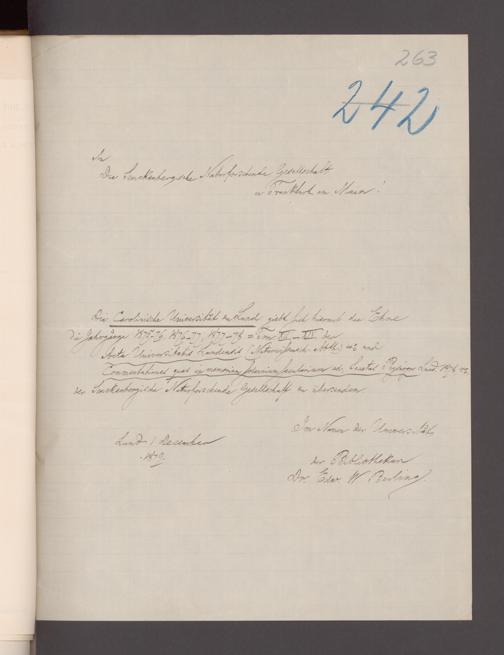 263
242
An
Die Senckenbergische Naturforschende Gesellschaft
in Frankfurt am Main!
Die Carolinische Universität in Lund giebt sich hiermit die Ehre
die Jahrgänge 1875-76, 1876-77, 1877-78 = Tom XII-XIV der
Acta Universitatis Lundensis (Naturwissensch. Abth.) und
Commentationes quas in memoriam solemnium saecularium ed. Societas Physiogr. Lund. 1878
der Senckenbergischen Naturforschenden Gesellschaft zu übersenden.
Lund 1 December
1879.
Im Namen der Universität
der Bibliothekar
Dr. Edw. W. Berling